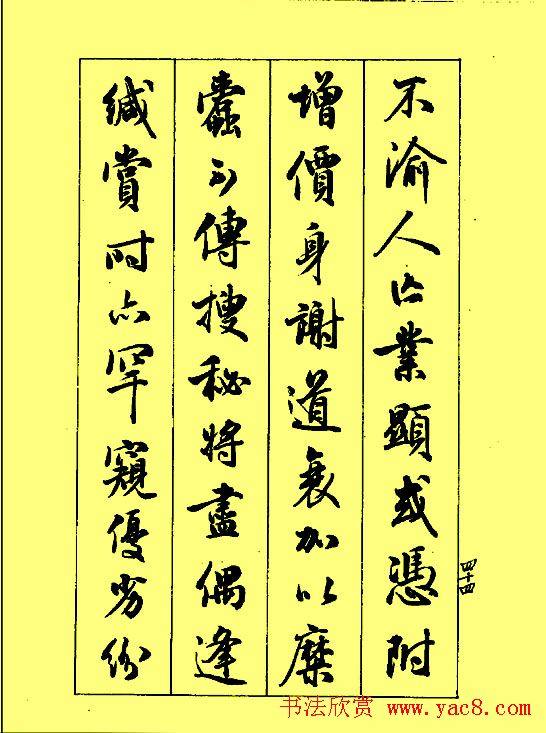 不渝人亡業顯或憑附
增價身謝道衰加以糜
蠹不傳搜秘將盡偶逢
緘賞時亦罕窺優劣紛
四十四
书法欣赏 www.yac8.com